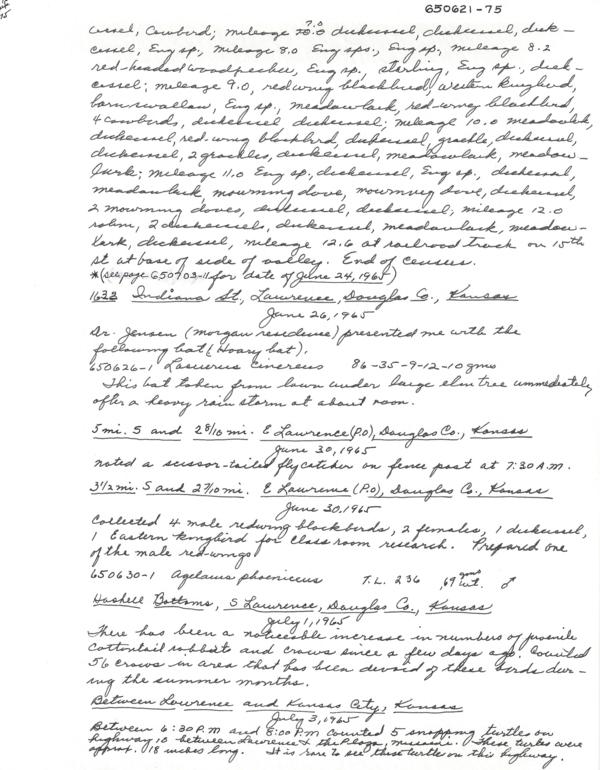 650621-75
cessel, Cowbird; mileage 7.0 dickcissel, dickcessel, dick-
cessel, Eng sp., mileage 8.0 Eng sps., Eng sp., mileage 8.2
red-headed woodpecker, Eng sp., starling, Eng sp., dick-
cessel; mileage 9.0, redwing blackbird, western kingbird,
barn swallow, Eng sp., meadowlark, red-wing blackbird,
4 cowbirds, dickcissel dickcissel; mileage 10.0 meadowlark,
dickcissel, red-wing blackbird, dickcissel, grackle, dickcissel,
dickcissel, 2 grackles, dickcissel, meadowlark, meadow-
lark; mileage 11.0 Eng sp., dickcissel, Eng sp., dickcissel,
meadowlark, mourning dove, mourning dove, dickcissel,
2 mourning doves, dickcissel, dickcissel; mileage 12.0
robin, 2 dickcissels, dickcissel, meadowlark, meadow-
lark, dickcissel, mileage 12.6 at railroad track on 15th
st at base of side of valley. End of Census.
*(see page 650703-11 for date of June 24, 1965)
Indiana St, Lawrence, Douglas Co., Kansas
June 26, 1965
Dr. Jensen (Morgan residence) presented me with the
following bat (Hoary bat).
650626-1 Lasiurus cinereus 86-35-9-12-10 gms
This bat taken from lawn under large elm tree immediately
after a heavy rain storm at about noon.
5 mi. S and 2 8/10 mi. E Lawrence (P.O), Douglas Co., Kansas
June 30, 1965
noted a scissor-tailed flycatcher on fence post at 7:30 A.M.
3 1/2 mi. S and 2 7/10 mi. E Lawrence (P.o), Douglas Co., Kansas
June 30, 1965
Collected 4 male redwing blackbirds, 2 females, 1 dickcissel,
1 Eastern kingbird for class room research. Prepared one
of the male red-wings
650630-1 Agelaius phoeniceus T.L. 236 69 gms wt. ♂
Haskell Bottoms, S Lawrence, Douglas Co., Kansas
July 1, 1965
There has been a noticeable increase in numbers of juvenile
Cottontail rabbits and crows since a few days ago. Counted
56 crows in area that has been devoid of these birds dur-
ing the summer months.
Between Lawrence and Kansas City, Kansas
July 3, 1965
Between 6:30 P.M and 8:00 P.M counted 5 snapping turtles on
highway 10 between Lawrence & the Plaza, Missouri. These turtles were
approx. 18 inches long. It is rare to see these turtle on this highway.